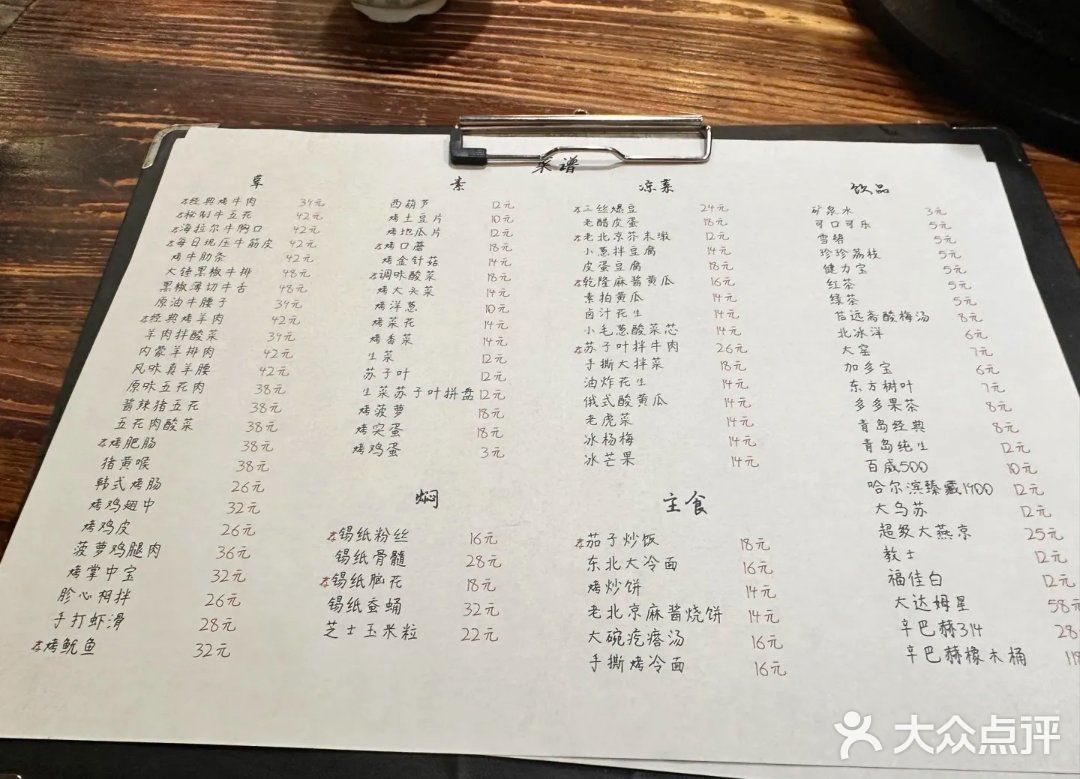 菜谱
荤
经典烤牛肉 34元
秘制牛五花 42元
海拉尔牛胸口 42元
每日现压牛筋皮 42元
烤牛肋条 42元
大锤黑椒牛排 48元
黑椒薄切牛舌 48元
原油牛腰子 34元
经典烤羊肉 42元
羊肉拌酸菜 34元
内蒙羊排肉 42元
风味真羊腰 42元
原味五花肉 38元
酱辣猪五花 38元
五花肉酸菜 38元
烤肥肠 38元
猪黄喉 38元
韩式烤肠 26元
烤鸡翅中 32元
烤鸡皮 26元
菠萝鸡腿肉 36元
烤掌中宝 32元
胗心焖拌 26元
手打虾滑 28元
烤鱿鱼 32元
素
西葫芦 12元
烤土豆片 10元
烤地瓜片 12元
烤口蘑 18元
烤金针菇 14元
调味酸菜 18元
烤大头菜 14元
烤洋葱 10元
烤菜花 14元
烤香菜 14元
生菜 12元
苏子叶 12元
生菜苏子叶拼盘 12元
烤菠萝 18元
烤实蛋 18元
烤鸡蛋 3元
焖
锡纸粉丝 16元
锡纸骨髓 28元
锡纸脑花 18元
锡纸蚕蛹 32元
芝士玉米粒 22元
凉菜
三丝爆豆 24元
老醋皮蛋 18元
老北京芥末墩 12元
小葱拌豆腐 14元
皮蛋豆腐 18元
乾隆麻酱黄瓜 16元
素拍黄瓜 14元
卤汁花生 14元
小毛葱酸菜芯 14元
苏子叶拌牛肉 26元
手撕大拌菜 18元
油炸花生 14元
俄式酸黄瓜 14元
老虎菜 14元
冰杨梅 14元
冰芒果 14元
主食
茄子炒饭 18元
东北大冷面 16元
烤炒饼 14元
老北京麻酱烧饼 14元
大碗疙瘩汤 16元
手撕烤冷面 16元
饮品
矿泉水 3元
可口可乐 5元
雪碧 5元
珍珍荔枝 5元
健力宝 5元
红茶 5元
绿茶 5元
信远斋酸梅汤 8元
北冰洋 6元
大窑 7元
加多宝 6元
东方树叶 7元
多多果茶 8元
青岛经典 8元
青岛纯生 12元
百威500 10元
哈尔滨臻藏1900 12元
大乌苏 12元
超级大燕京 25元
教士 12元
福佳白 12元
大达姆星 58元
辛巴赫314 28
辛巴赫橡木桶
大众点评